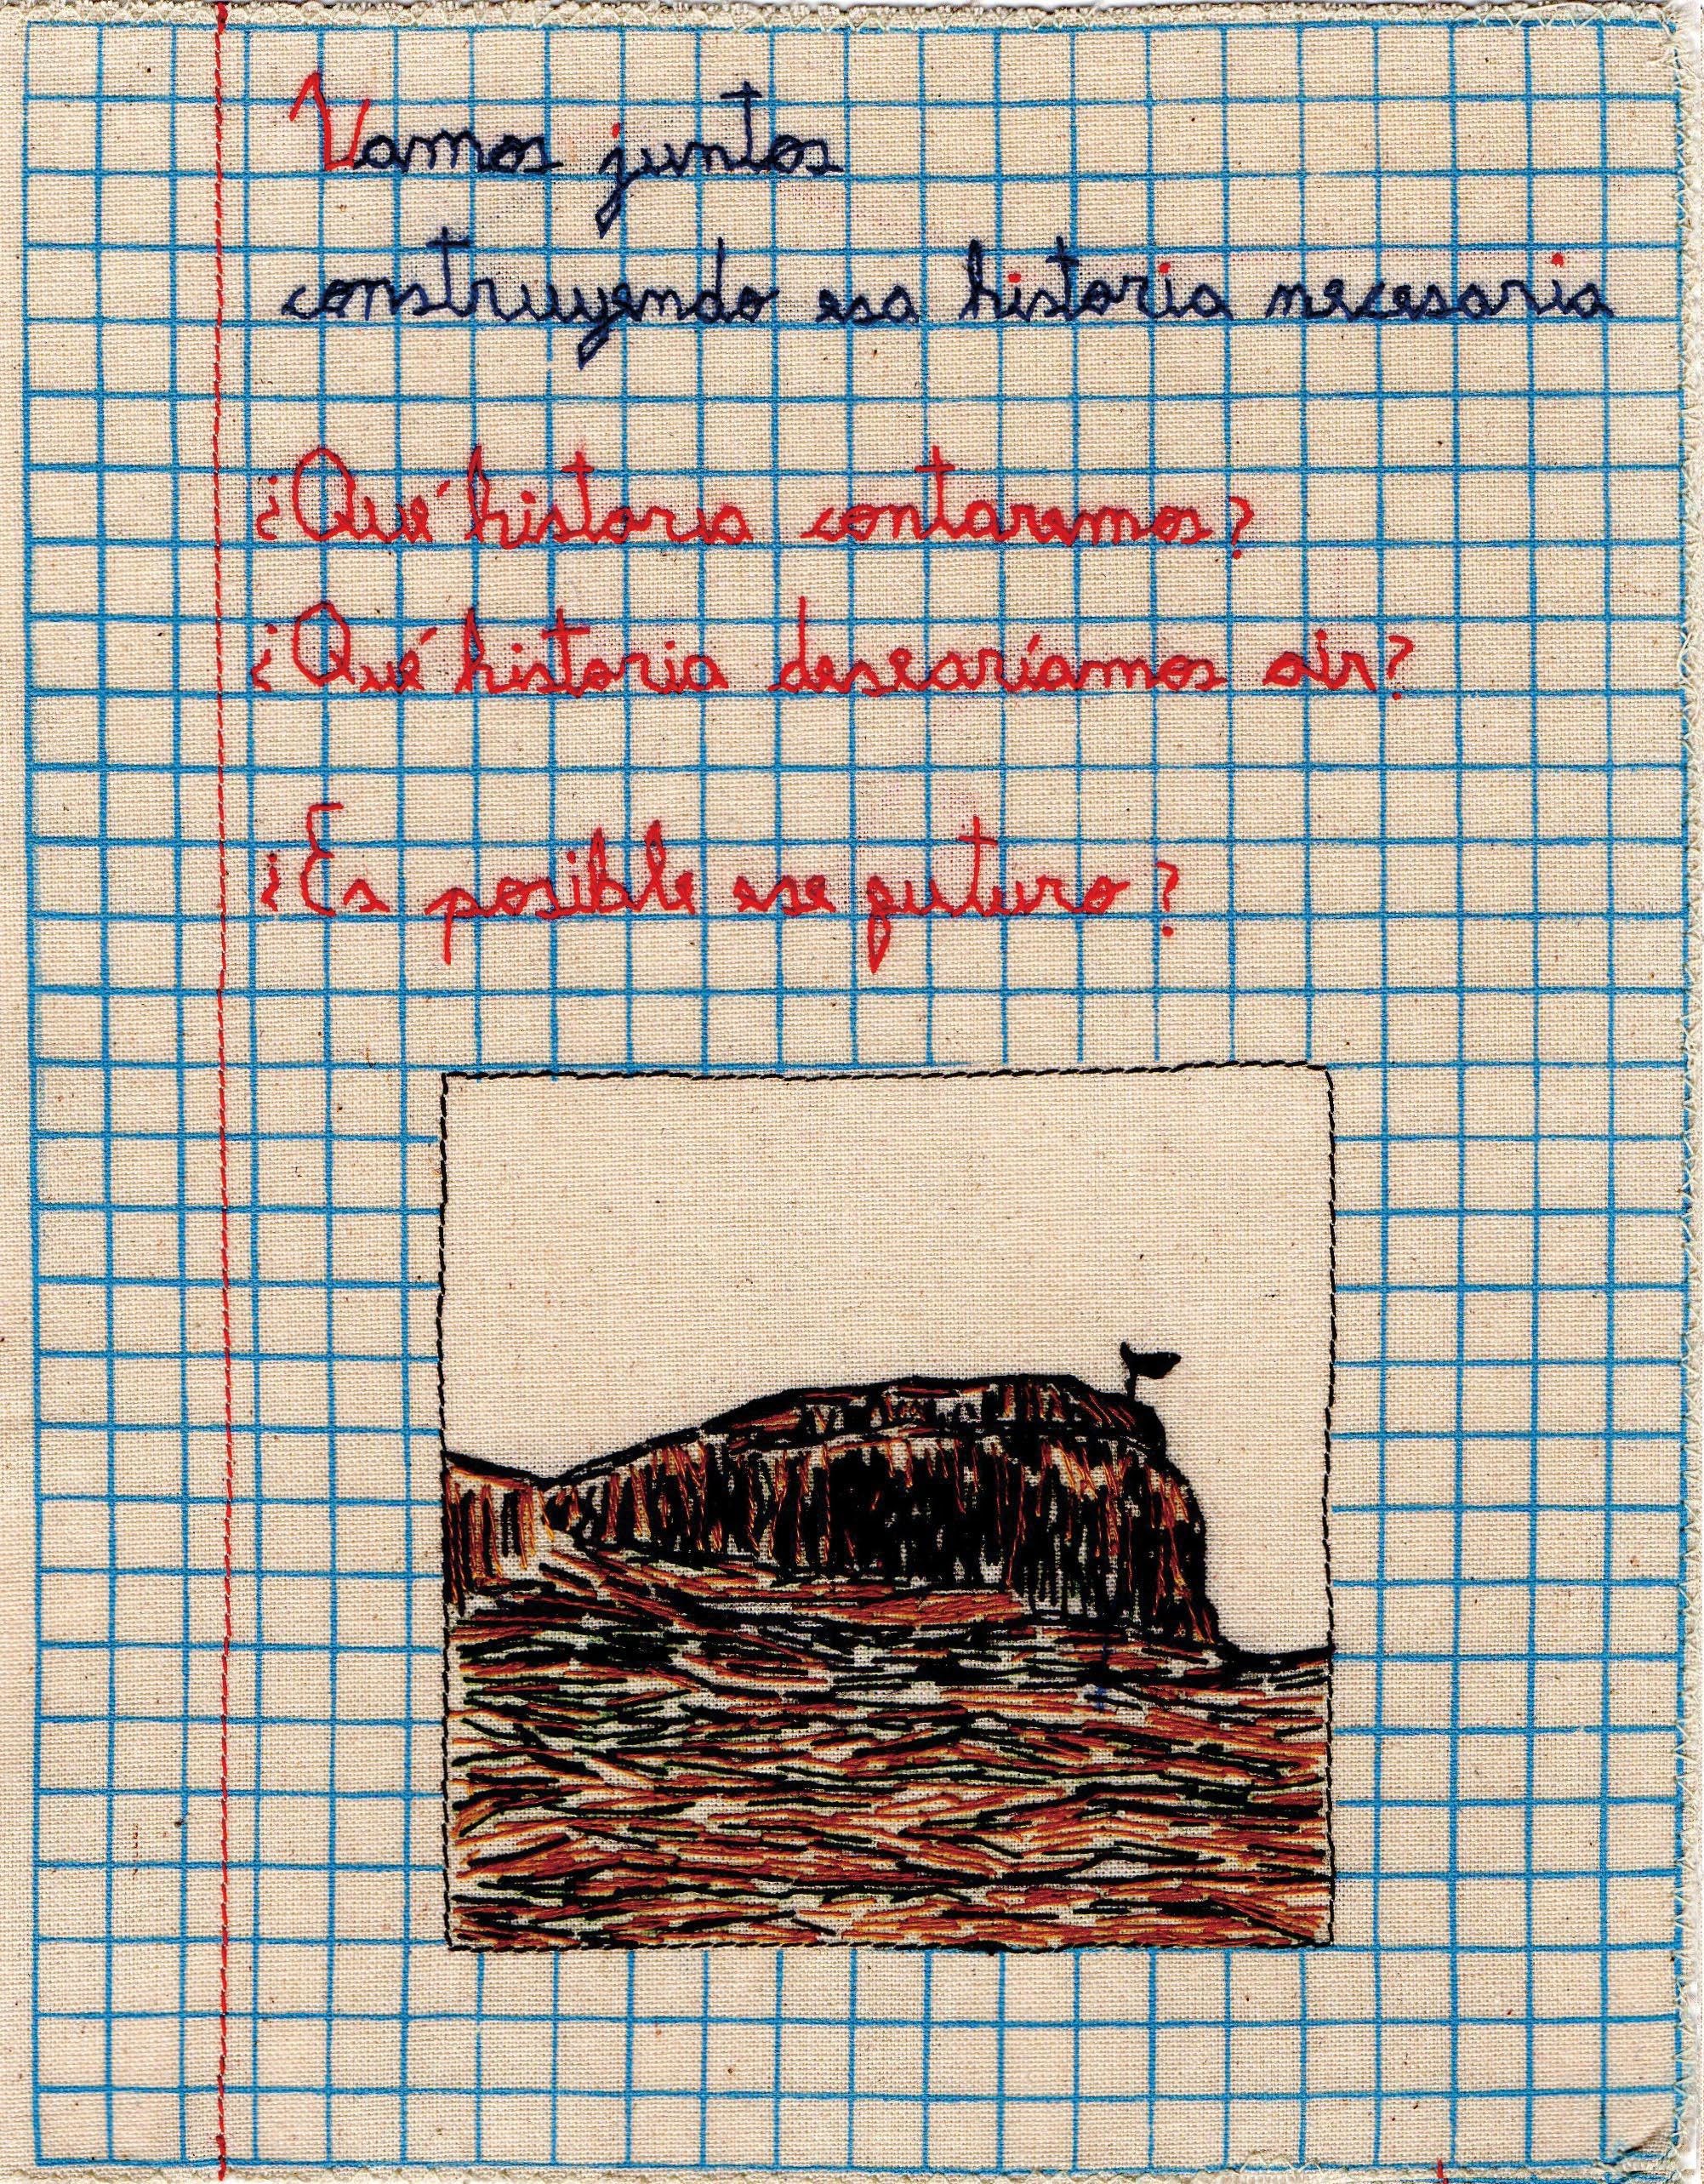 Vamos juntos
construyendo esa historia necesaria
¿Qué historia contaremos?
¿Qué historia desearíamos oir?
¿Es posible ese futuro?